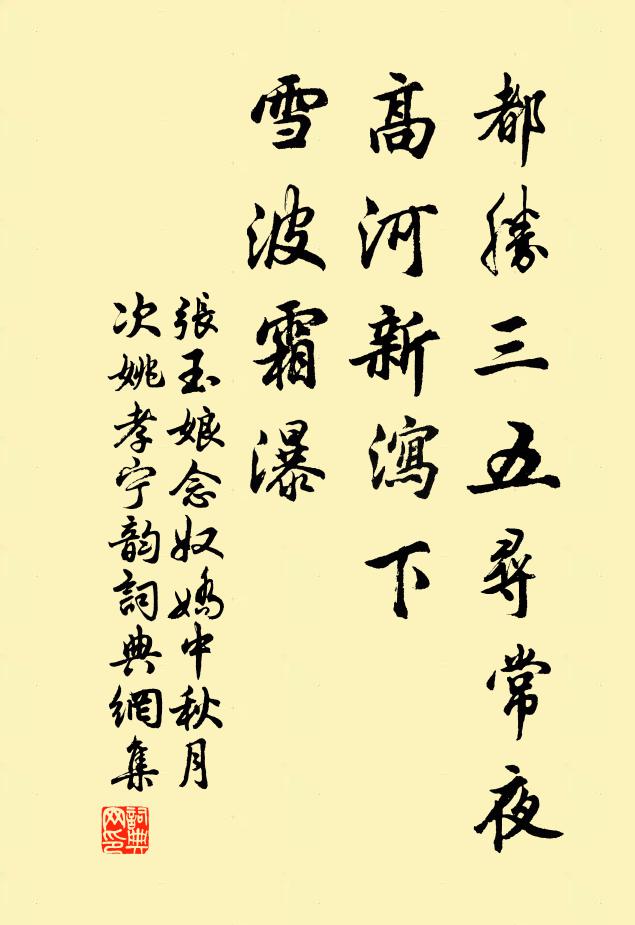 都勝三五尋常夜
高河新瀉下
雪波霜瀑
張玉娘念奴嬌中秋月
次姚孝宁韵詞典網集
詞典
网印